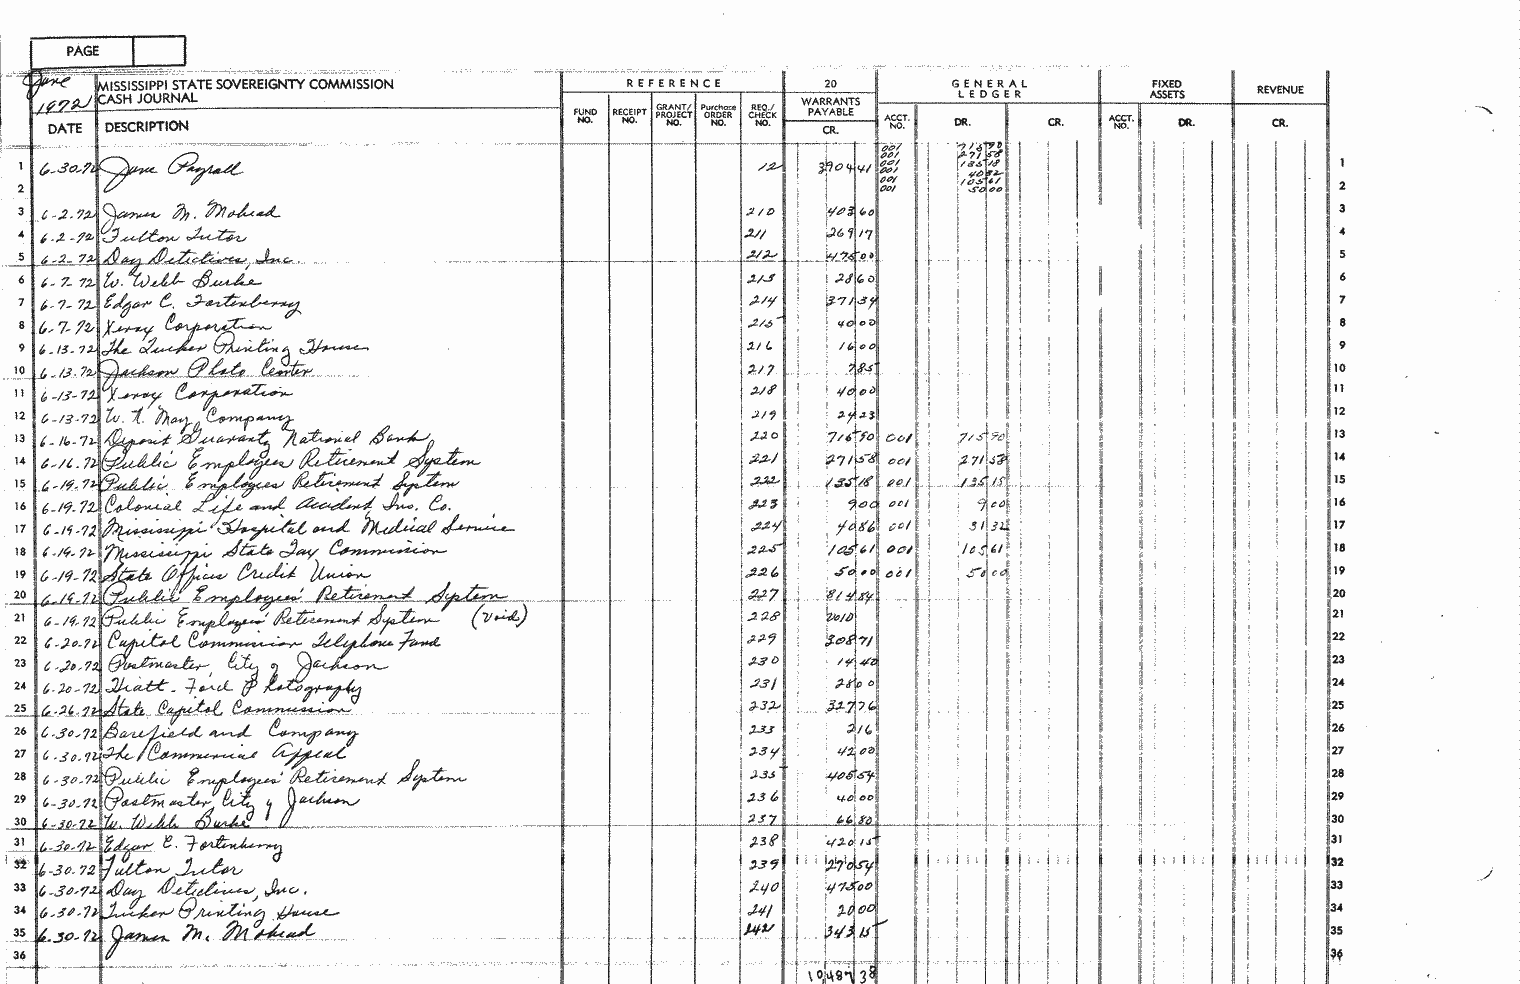 PAGE
June 1972 MISSISSIPPI STATE SOVEREIGNTY COMMISSION REFERENCE 20 GENERAL LEDGER FIXED ASSETS REVENUE
CASH JOURNAL FUND NO. RECEIPT NO. GRANT/PROJECT NO. Purchase ORDER NO. REQ./CHECK NO. WARRANTS PAYABLE
DATE DESCRIPTION CR. ACCT. NO. DR. CR. ACCT. NO. DR. CR.
001 715 90
001 271 58
1 6-30-72 June Payroll 12 3904 41 001 135 18 1
001 40 32
001 105 61
2 001 50 00 2
3 6-2-72 James M. Mohead 210 403 60 3
4 6-2-72 Fulton Tutor 211 269 17 4
5 6-2-72 Day Detectives, Inc. 212 475 00 5
6 6-7-72 W. Webb Burke 213 28 60 6
7 6-7-72 Edgar C. Fortenberry 214 371 34 7
8 6-7-72 Xerox Corporation 215 40 00 8
9 6-13-72 The Tucker Printing House 216 16 00 9
10 6-13-72 Jackson Photo Center 217 7 85 10
11 6-13-72 Xerox Corporation 218 40 00 11
12 6-13-72 W. T. May Company 219 24 23 12
13 6-16-72 Deposit Guaranty National Bank 220 715 90 001 715 90 13
14 6-16-72 Public Employees Retirement System 221 271 58 001 271 58 14
15 6-19-72 Public Employees Retirement System 222 135 18 001 135 18 15
16 6-19-72 Colonial Life and Accident Ins. Co. 223 9 00 001 9 00 16
17 6-19-72 Mississippi Hospital and Medical Service 224 40 86 001 31 32 17
18 6-19-72 Mississippi State Tax Commission 225 105 61 001 105 61 18
19 6-19-72 State Offices Credit Union 226 50 00 001 50 00 19
20 6-19-72 Public Employees' Retirement System 227 814 84 20
21 6-19-72 Public Employees' Retirement System (Void) 228 Void 21
22 6-20-72 Capitol Commission Telephone Fund 229 308 71 22
23 6-20-72 Postmaster, City of Jackson 230 14 40 23
24 6-20-72 Hiatt-Ford Photography 231 28 00 24
25 6-26-72 State Capitol Commission 232 327 76 25
26 6-30-72 Barefield and Company 233 2 16 26
27 6-30-72 The Commercial Appeal 234 42 00 27
28 6-30-72 Public Employees' Retirement System 235 405 54 28
29 6-30-72 Postmaster City of Jackson 236 40 00 29
30 6-30-72 W. Webb Burke 237 66 80 30
31 6-30-72 Edgar C. Fortenberry 238 420 15 31
32 6-30-72 Fulton Tutor 239 270 54 32
33 6-30-72 Day Detectives, Inc. 240 475 00 33
34 6-30-72 Tucker Printing House 241 20 00 34
35 6-30-72 James M. Mohead 242 343 15 35
36 36
10487 38